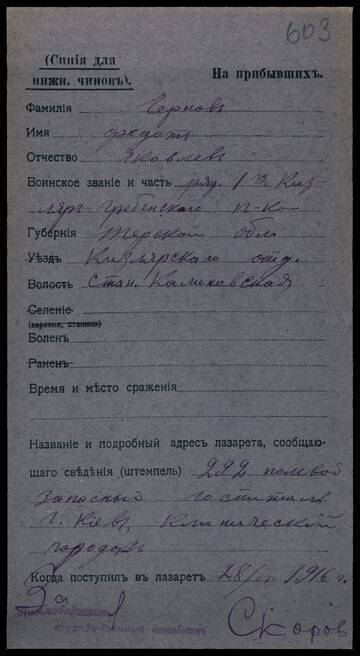 603
(Синія для
нижн. чиновъ).
На прибывшихъ.
Фамилія Черновъ
Имя Федотъ
Отчество Яковлев
Воинское званіе и часть ряд. 1 Киз
ляро-Гребенского п-ка
Губернія Терской обл
Уѣздъ Кизлярскаго отд.
Волость Стан. Калиновская
Селеніе
(деревня, станица)
Боленъ
Раненъ
Время и мѣсто сраженія
Названіе и подробный адресъ лазарета, сообщаю-
щаго свѣдѣнія (штемпель) 292 полевой
запасный госпиталь
г. Кіевъ Клинической
городокъ
Когда поступилъ въ лазаретъ 28/ 1916 г.
За
Дѣлопроизводитель
чиновникъ
Скоров